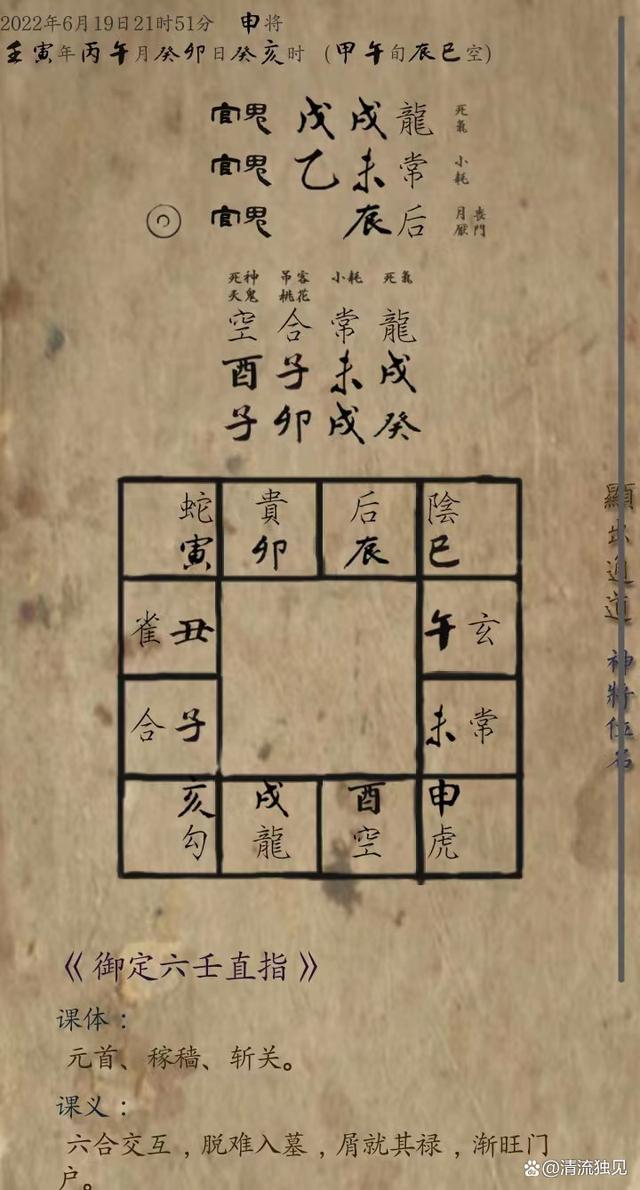 2022年6月19日21时51分 申将
壬寅年丙午月癸卯日癸亥时 (甲午旬辰巳空)
官鬼 戊 戌 龍 死氣
官鬼 乙 未 常 小耗
官鬼 辰 后 月厭 喪門
死神 吊客 小耗 死氣
天鬼 桃花
空 合 常 龍
酉 子 未 戌
子 卯 戌 癸
蛇 貴 后 陰
寅 卯 辰 巳
雀 丑 午 玄
合 子 未 常
亥 戌 酉 申
勾 龍 空 虎
神將位名
《御定六壬直指》
课体：
元首、稼穑、斩关。
课义：
六合交互，脱难入墓，屑就其禄，渐旺门
户。
@清流独见